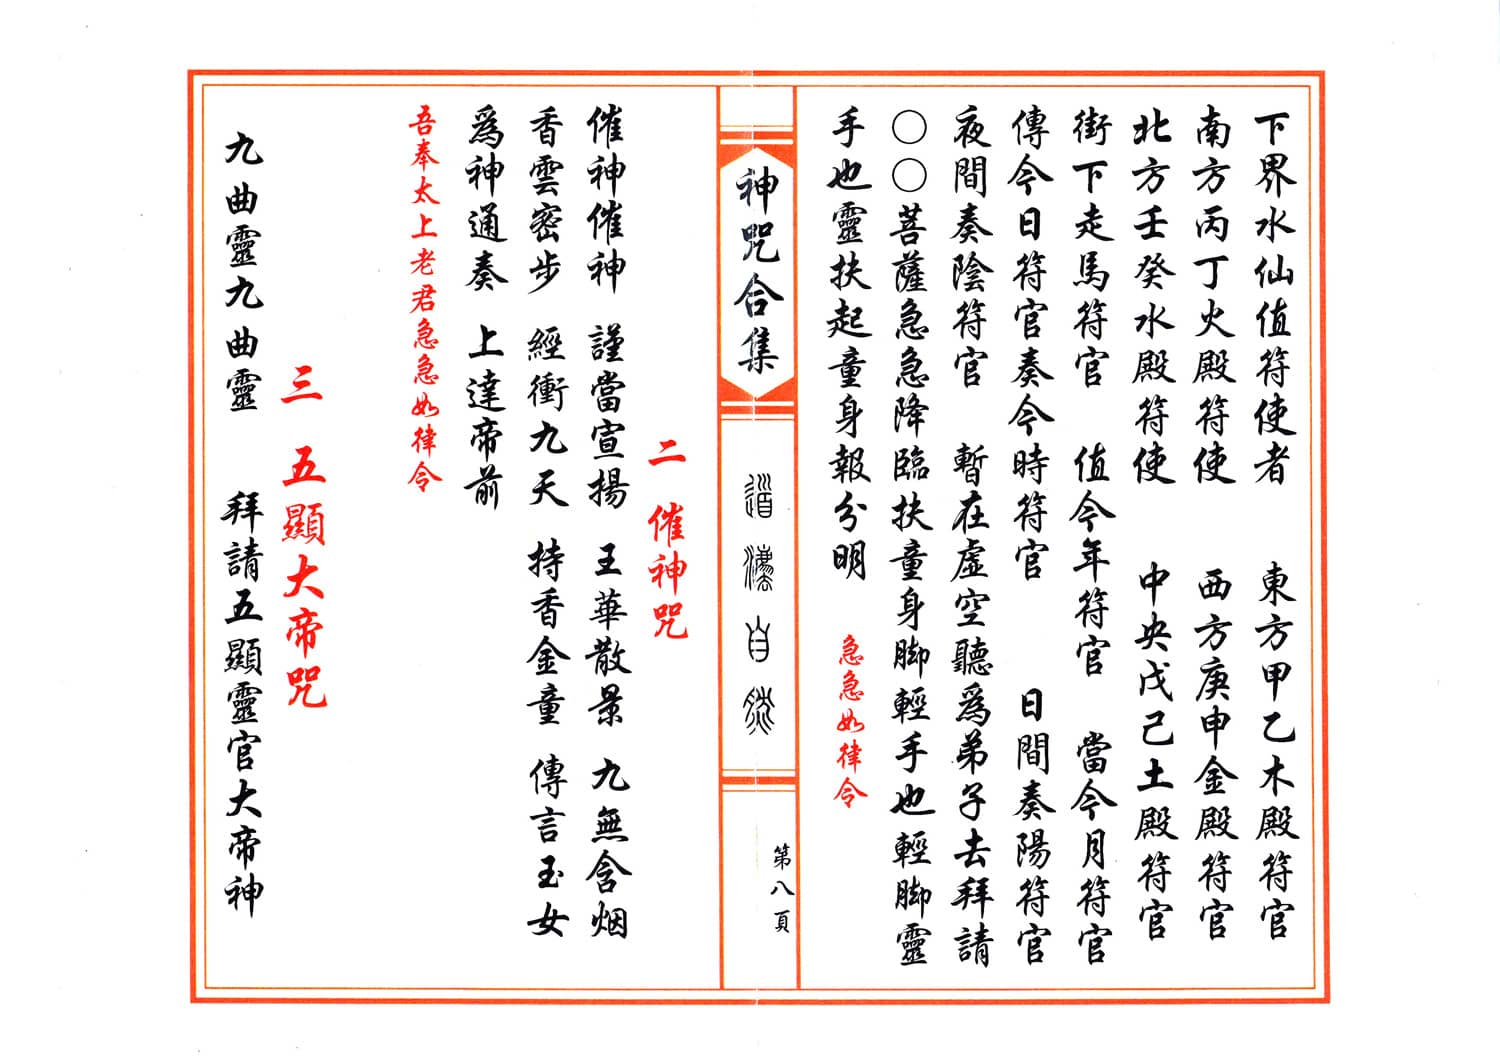 下界水仙值符使者　東方甲乙木殿符官
南方丙丁火殿符使　西方庚申金殿符官
北方壬癸水殿符使　中央戊己土殿符官
街下走馬符官　值今年符官　當今月符官
傳今日符官奏今時符官　日間奏陽符官
夜間奏陰符官　暫在虛空聽爲弟子去拜請
○○菩薩急急降臨扶童身脚輕手也輕脚靈
手也靈扶起童身報分明　急急如律令
神咒合集
道法自然
第八頁
二　催神咒
催神催神　謹當宣揚　王華散景　九無含烟
香雲密步　經衝九天　持香金童　傳言玉女
爲神通奏　上達帝前
吾奉太上老君急急如律令
三　五顯大帝咒
九曲靈九曲靈　拜請五顯靈官大帝神